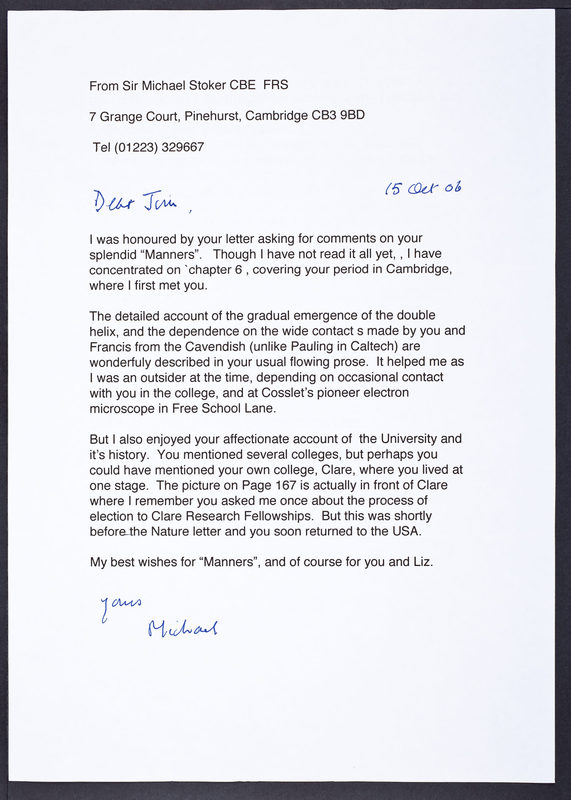 From Sir Michael Stoker CBE  FRS
7 Grange Court, Pinehurst, Cambridge CB3 9BD
Tel (01223) 329667
15 Oct 06
Dear Jim,
I was honoured by your letter asking for comments on your
splendid “Manners”.   Though I have not read it all yet, , I have
concentrated on `chapter 6 , covering your period in Cambridge,
where I first met you.
The detailed account of the gradual emergence of the double
helix, and the dependence on the wide contact s made by you and
Francis from the Cavendish (unlike Pauling in Caltech) are
wonderfuly described in your usual flowing prose.  It helped me as
I was an outsider at the time, depending on occasional contact
with you in the college, and at Cosslet’s pioneer electron
microscope in Free School Lane.
But I also enjoyed your affectionate account of  the University and
it’s history.  You mentioned several colleges, but perhaps you
could have mentioned your own college, Clare, where you lived at
one stage.  The picture on Page 167 is actually in front of Clare
where I remember you asked me once about the process of
election to Clare Research Fellowships.  But this was shortly
before the Nature letter and you soon returned to the USA.
My best wishes for “Manners”, and of course for you and Liz.
Yours
Michael